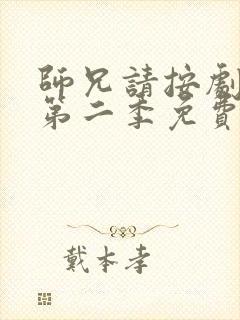 師兄請按劇
第二季免費
戴本孝